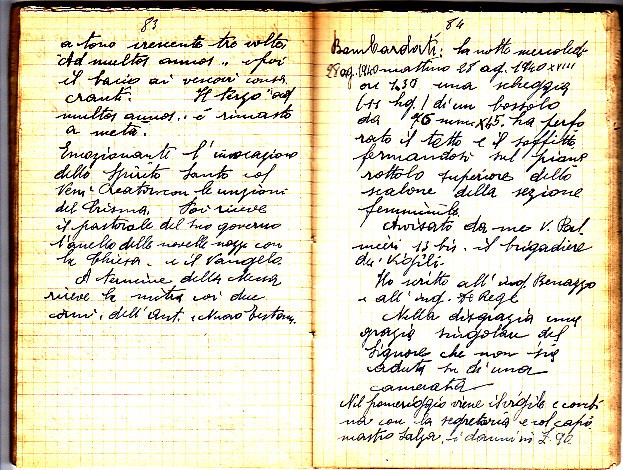 83
a tono crescente tre volte
Ad multos annos„ e poi
il bacio ai vescovi consa
cranti. Il terzo "ad
multos annos„ è rimasto
a metà.
Emozionante l'invocazione
dello Spirito Santo col
Veni Creator con le unzioni
del Crisma. Poi riceve
il pastorale del suo governo
l'anello delle novelle nozze con
la Chiesa. e il Vangelo
A termine della Messa
riceve la mitra coi due
corni, dell'Ant. e Nuovo Testam.
84
Bombardati: la notte mercoledì
28 ag. 1940 mattino 28 ag. 1940 XVIII
ore 1.30 una scheggia
(hg.) d'un bossolo
da 76 mm ha perfo
rato il tetto e il soffitto
fermandosi sul piane
rottolo superiore dello
scalone della sezione
femminile.
Avvisato da me V. Pal
mieri 13 bis. il brigadiere
dei Vigili.
Ho scritto all'ing. Benazzo
e all'ing. De Rege
Nella disgrazia una
grazia singolare del
Signore che non sia
caduta su di una
camerata
Nel pomeriggio viene il vigile e combi
na con la segretaria e col capo
mastro Salza, i danni in £. 90